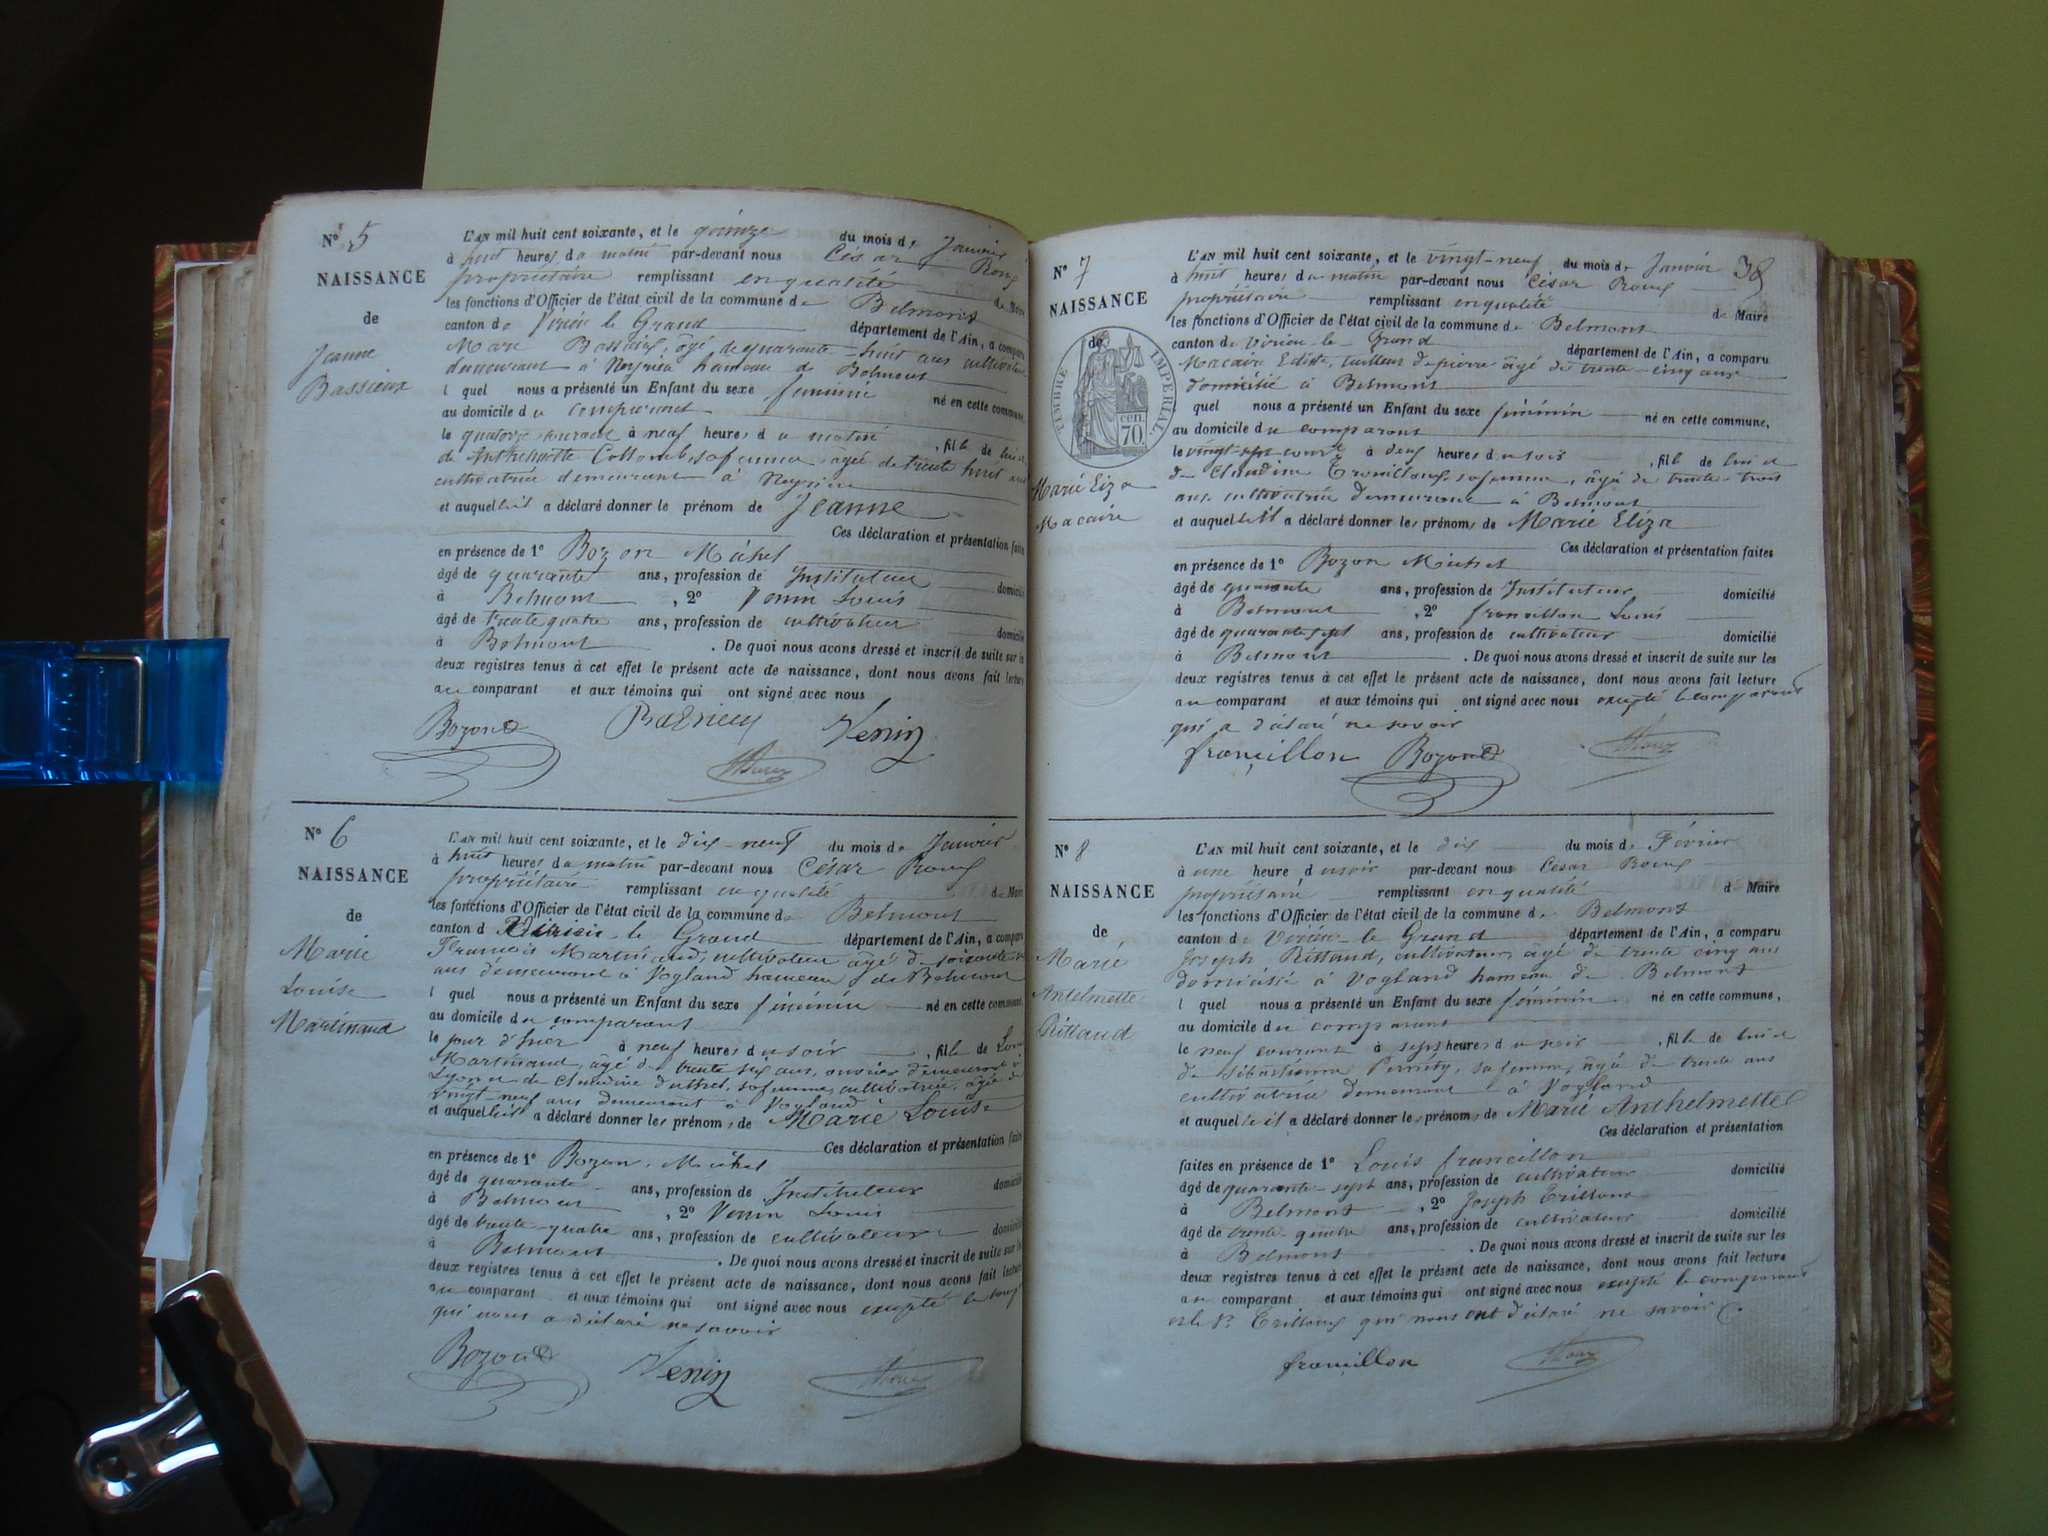 N° 5
NAISSANCE
de
Jeanne
Bassieux
L'AN mil huit cent soixante, et le quinze du mois de Janvier
à huit heures du matin par-devant nous César Roux
propriétaire remplissant en qualité de Maire
les fonctions d'Officier de l'état civil de la commune de Belmont
canton de Virieu le Grand département de l'Ain, a comparu
Marc Bassieux, âgé de quarante-huit ans cultivateur
demeurant à hameau de Belmont
l quel nous a présenté un Enfant du sexe féminin né en cette commune,
au domicile du comparant
le quatorze courant à neuf heures du matin, fille de lui et
de Anthelmette Collomb, sa femme, âgée de trente huit ans
cultivatrice demeurant à
et auquel il a déclaré donner le prénom de Jeanne
Ces déclaration et présentation faites
en présence de 1° Bozon Michel
âgé de quarante ans, profession de Instituteur domicilié
à Belmont, 2° Venin Louis
âgé de trente quatre ans, profession de cultivateur domicilié
à Belmont. De quoi nous avons dressé et inscrit de suite sur les
deux registres tenus à cet effet le présent acte de naissance, dont nous avons fait lecture
au comparant et aux témoins qui ont signé avec nous
Bozon Bassieux Venin
Roux
N° 6
NAISSANCE
de
Marie
Louise
Martinaud
L'AN mil huit cent soixante, et le dix-neuf du mois de Janvier
à huit heures du matin par-devant nous César Roux
propriétaire remplissant en qualité de Maire
les fonctions d'Officier de l'état civil de la commune de Belmont
canton d Virieu le Grand département de l'Ain, a comparu
François Martinaud, cultivateur âgé de soixante
ans demeurant à Vogland hameau de Belmont
l quel nous a présenté un Enfant du sexe féminin né en cette commune,
au domicile du comparant
le jour d'hier à neuf heures du soir, fille de Louis
Martinaud, âgé de trente six ans, ouvrier demeurant à
Lyon et de Claudine, sa femme, cultivatrice, âgée de
vingt-neuf ans demeurant à Vogland
et auquel il a déclaré donner les prénoms de Marie Louise
Ces déclaration et présentation faites
en présence de 1° Bozon Michel
âgé de quarante ans, profession de Instituteur domicilié
à Belmont, 2° Venin Louis
âgé de trente-quatre ans, profession de cultivateur domicilié
à Belmont. De quoi nous avons dressé et inscrit de suite sur les
deux registres tenus à cet effet le présent acte de naissance, dont nous avons fait lecture
au comparant et aux témoins qui ont signé avec nous excepté le comp
qui nous a déclaré ne savoir
Bozon Venin Roux
38
N° 7
NAISSANCE
de
TIMBRE IMPERIAL
70 cen.
Marie Eliza
Macaire
L'AN mil huit cent soixante, et le vingt-neuf du mois de Janvier
à huit heures du matin par-devant nous César Roux
propriétaire remplissant en qualité de Maire
les fonctions d'Officier de l'état civil de la commune de Belmont
canton de Virieu-le-Grand département de l'Ain, a comparu
Macaire, tailleur de pierre âgé de trente-cinq ans
domicilié à Belmont
quel nous a présenté un Enfant du sexe féminin né en cette commune,
au domicile du comparant
le vingt-sept courant à deux heures du soir, fille de lui et
de Claudine, sa femme, âgée de trente-trois
ans, cultivatrice demeurant à Belmont
et auquel il a déclaré donner les prénoms de Marie Eliza
Ces déclaration et présentation faites
en présence de 1° Bozon Michel
âgé de quarante ans, profession de Instituteur domicilié
à Belmont, 2° Francillon Louis
âgé de quarante sept ans, profession de cultivateur domicilié
à Belmont. De quoi nous avons dressé et inscrit de suite sur les
deux registres tenus à cet effet le présent acte de naissance, dont nous avons fait lecture
au comparant et aux témoins qui ont signé avec nous excepté le comparant
qui a déclaré ne savoir
françillon Bozon Roux
N° 8
NAISSANCE
de
Marie
Antelmette
Rittaud
L'AN mil huit cent soixante, et le dix du mois de Février
à une heure du soir par-devant nous César Roux
propriétaire remplissant en qualité d Maire
les fonctions d'Officier de l'état civil de la commune d Belmont
canton de Virieu-le Grand département de l'Ain, a comparu
Joseph Rittaud, cultivateur, âgé de trente cinq ans
domicilié à Vogland hameau de Belmont
l quel nous a présenté un Enfant du sexe féminin né en cette commune,
au domicile du comparant
le neuf courant à sept heures du soir, fille de lui et
de Sébastienne, sa femme, âgée de trente ans
cultivatrice demeurant à Vogland
et auquel il a déclaré donner les prénoms de Marie Anthelmette
Ces déclaration et présentation
faites en présence de 1° Louis francillon
âgé de quarante-sept ans, profession de cultivateur domicilié
à Belmont, 2° Joseph
âgé de trente ans, profession de cultivateur domicilié
à Belmont. De quoi nous avons dressé et inscrit de suite sur les
deux registres tenus à cet effet le présent acte de naissance, dont nous avons fait lecture
au comparant et aux témoins qui ont signé avec nous excepté le comparant
et le Sr qui nous ont déclaré ne savoir
francillon Roux